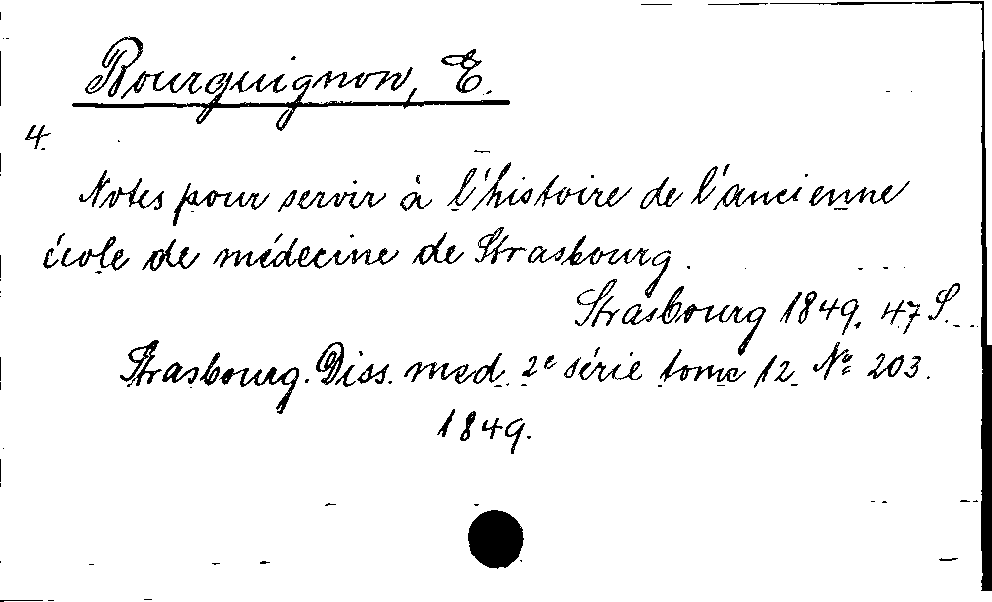 Bourguignon, E.
4.
Notes pour servir à l'histoire de l'ancienne
école de médecine de Strasbourg.
Strasbourg 1849. 47 S.
Strasbourg. Diss. med. 2e série tome 12. No. 203.
1849.